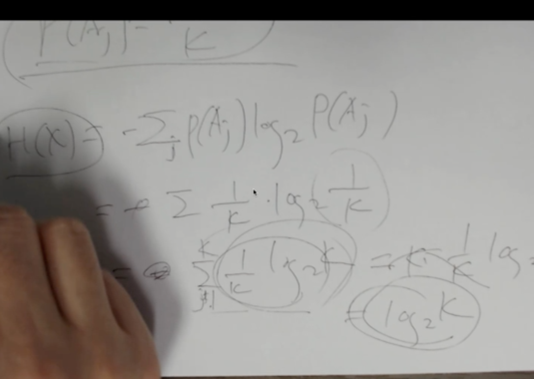 P(Aj) = 1/K
H(X) = -Σj P(Aj) log2 P(Aj)
= - Σ 1/K · log2 1/K
= Σ K j=1 1/K log2 K = K · 1/K log2
= log2 K